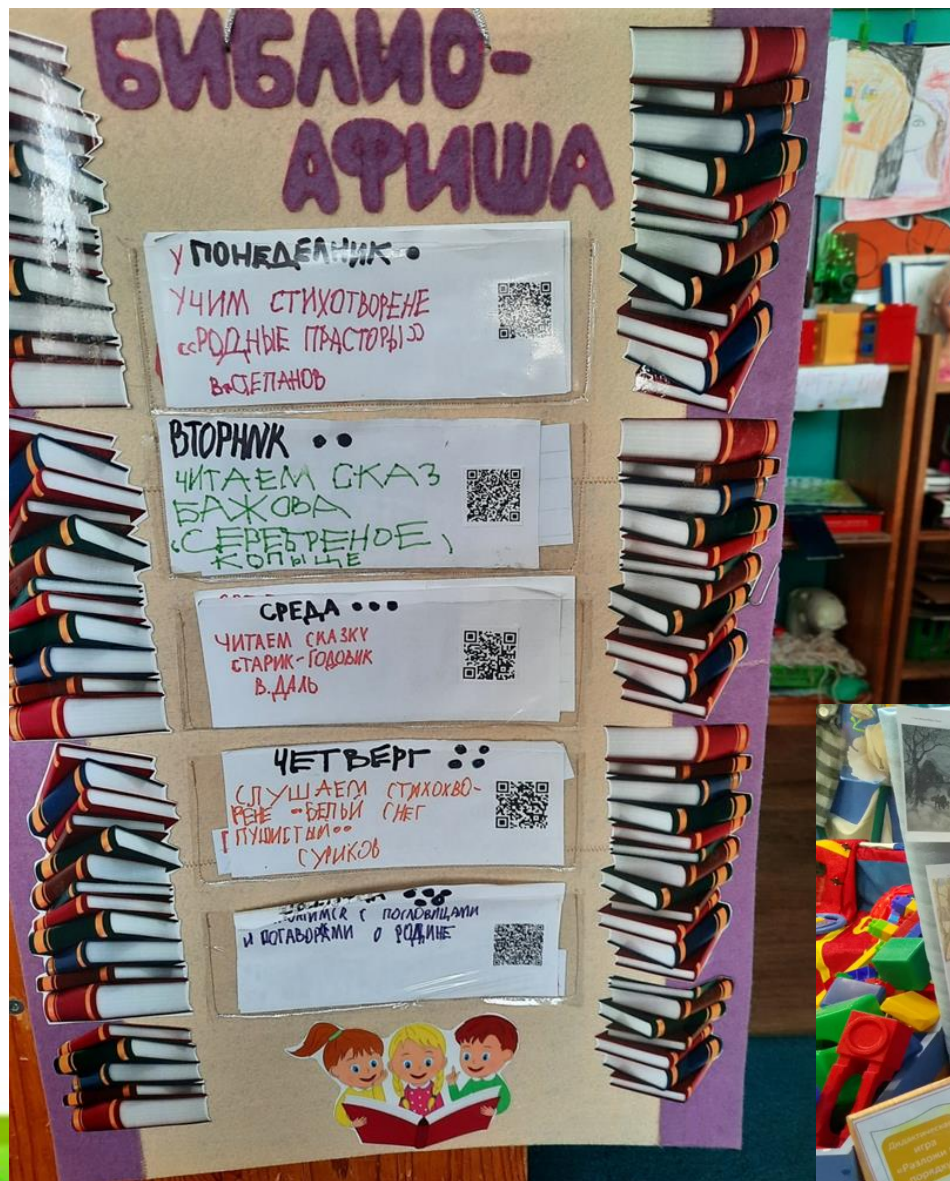 БИБЛИО-
АФИША
У ПОНЕДЕЛНИК •
УЧИМ СТИХОТВОРЕНЕ
«РОДНЫЕ ПРАСТОРЫ»
В.СТЕПАНОВ
ВТОРНИК ••
ЧИТАЕМ СКАЗ
БАЖОВА
"СЕРЕБРЕНОЕ,
КОПЫЩЕ
СРЕДА •••
ЧИТАЕМ СКАЗКУ
СТАРИК-ГОДОВИК
В.ДАЛЬ
ЧЕТВЕРГ ••••
СЛУШАЕМ СТИХОХВО-
РЕНЕ "БЕЛЫЙ СНЕГ
ПУШИСТЫЙ"
СУРИКОВ
С ПОСЛОВИЦАМИ
И ПОГАВОРАМИ О РОДИНЕ
Дидактическая
игра
«Разложи